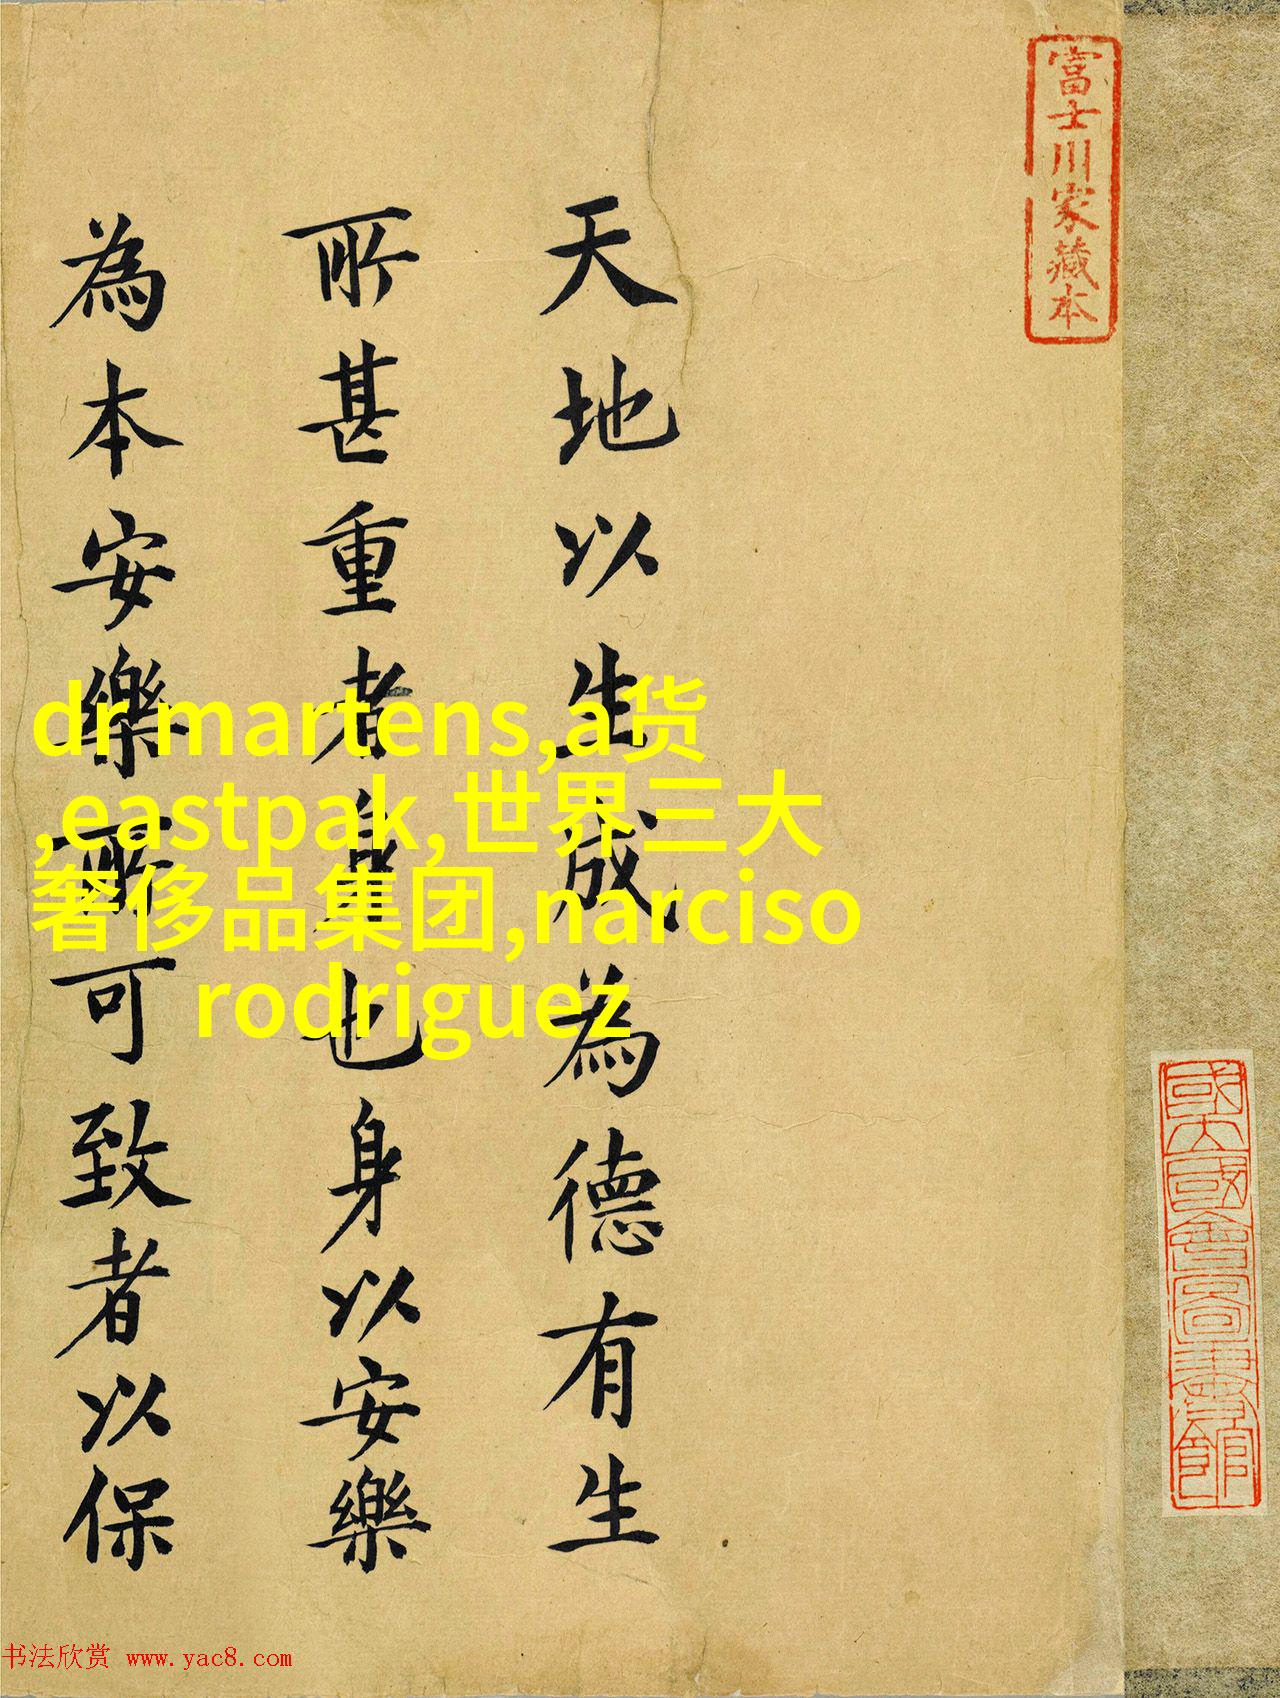 富士川家藏本
國立國會圖書館
天地以生成為德有生
所甚重者身也身以安樂
為本安樂所可致者以保
dr martens,a货
,eastpak,世界三大
奢侈品集团,narciso
rodriguez
书法欣赏 www.yac8.com